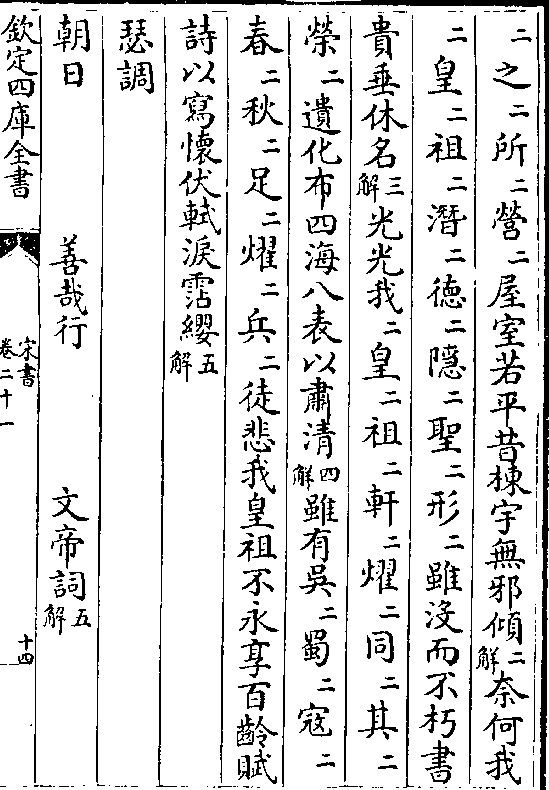 二之二所二營二屋室若平昔棟宇無邪傾二解奈何我
二皇二祖二潛二德二隱二聖二形二雖沒而不朽書
貴垂休名三解光光我二皇二祖二軒二燿二同二其二
榮二遺化布四海八表以肅清四解雖有吳二蜀二寇二
春二秋二足二燿二兵二徒悲我皇祖不永享百齡賦
詩以寫懷伏軾淚霑纓五解
瑟調
朝日 善哉行 文帝詞五解
欽定四庫全書 宋書卷二十一 十四